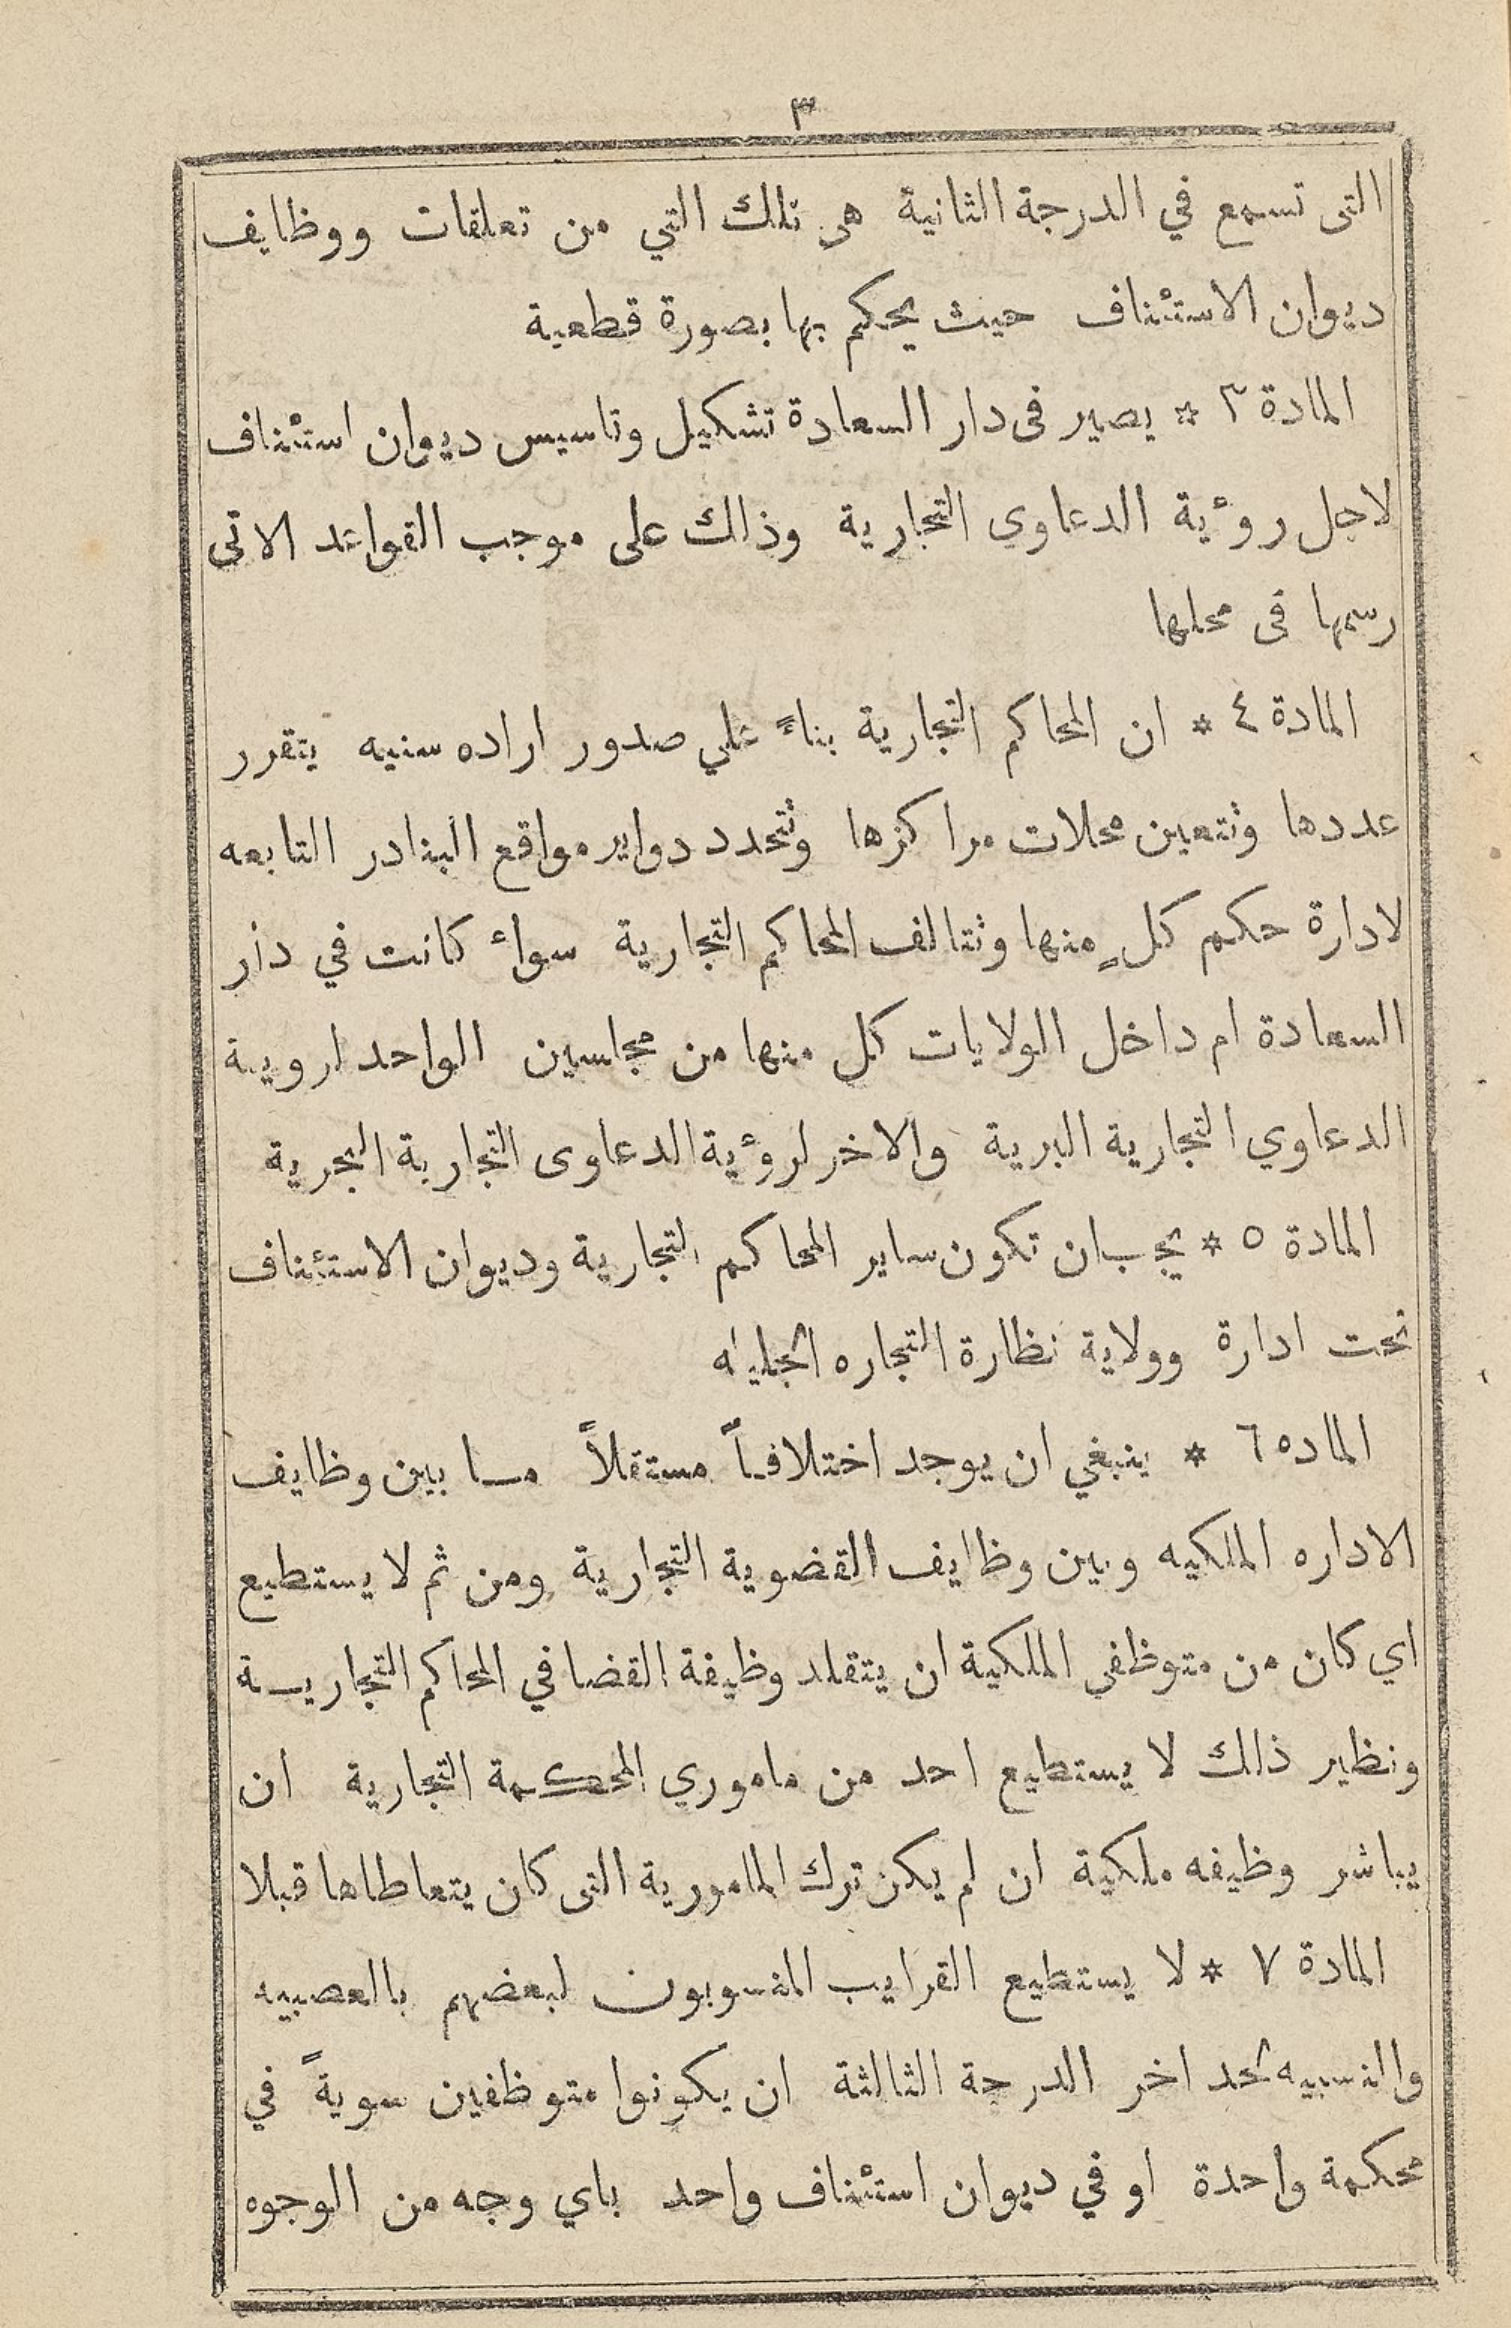 ٣
التى تسمع في الدرجة الثانية هى تلك التي من تعلقات ووظايف
ديوان الاستئناف حيث يحكم بها بصورة قطعية
المادة ٣ * يصير فى دار السعادة تشكيل وتاسيس ديوان استئناف
لاجل روءية الدعاوي التجارية وذالك على موجب القواعد الاتى
رسمها فى محلها
المادة ٤ * ان المحاكم التجارية بناءً علي صدور اراده سنيه يتقرر
عددها وتتعين محلات مراكزها وتتحدد دواير مواقع البنادر التابعه
لادارة حكم كلٍ منها وتتالف المحاكم التجارية سواء كانت في دار
السعادة ام داخل الولايات كل منها من مجلسين الواحد لروية
الدعاوي التجارية البرية والاخر لروءية الدعاوى التجارية البحرية
المادة ٥ * يجب ان تكون ساير المحاكم التجارية وديوان الاستئناف
تحت ادارة وولاية نظارة التجاره الجليله
الماده ٦ * ينبغي ان يوجد اختلافاً مستقلاً ما بين وظايف
الاداره الملكيه وبين وظايف القضوية التجارية ومن ثم لا يستطيع
اي كان من متوظفى الملكية ان يتقلد وظيفة القضا في المحاكم التجارية
ونظير ذالك لا يستطيع احد من ماموري المحكمة التجارية ان
يباشر وظيفه ملكية ان لم يكن ترك المامورية التى كان يتعاطاها قبلا
المادة ٧ * لا يستطيع القرايب المنسوبون لبعضهم بالعصبيه
والنسبيه لحد اخر الدرجة الثالثة ان يكونوا متوظفين سويةً في
محكمة واحدة او في ديوان استئناف واحد باي وجه من الوجوه